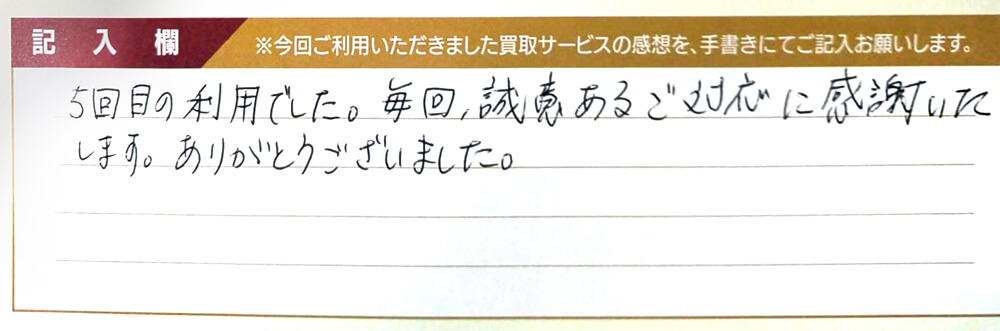 記入欄
※今回ご利用いただきました買取サービスの感想を、手書きにてご記入お願いします。
5回目の利用でした。毎回、誠意あるご対応に感謝いた
します。ありがとうございました。